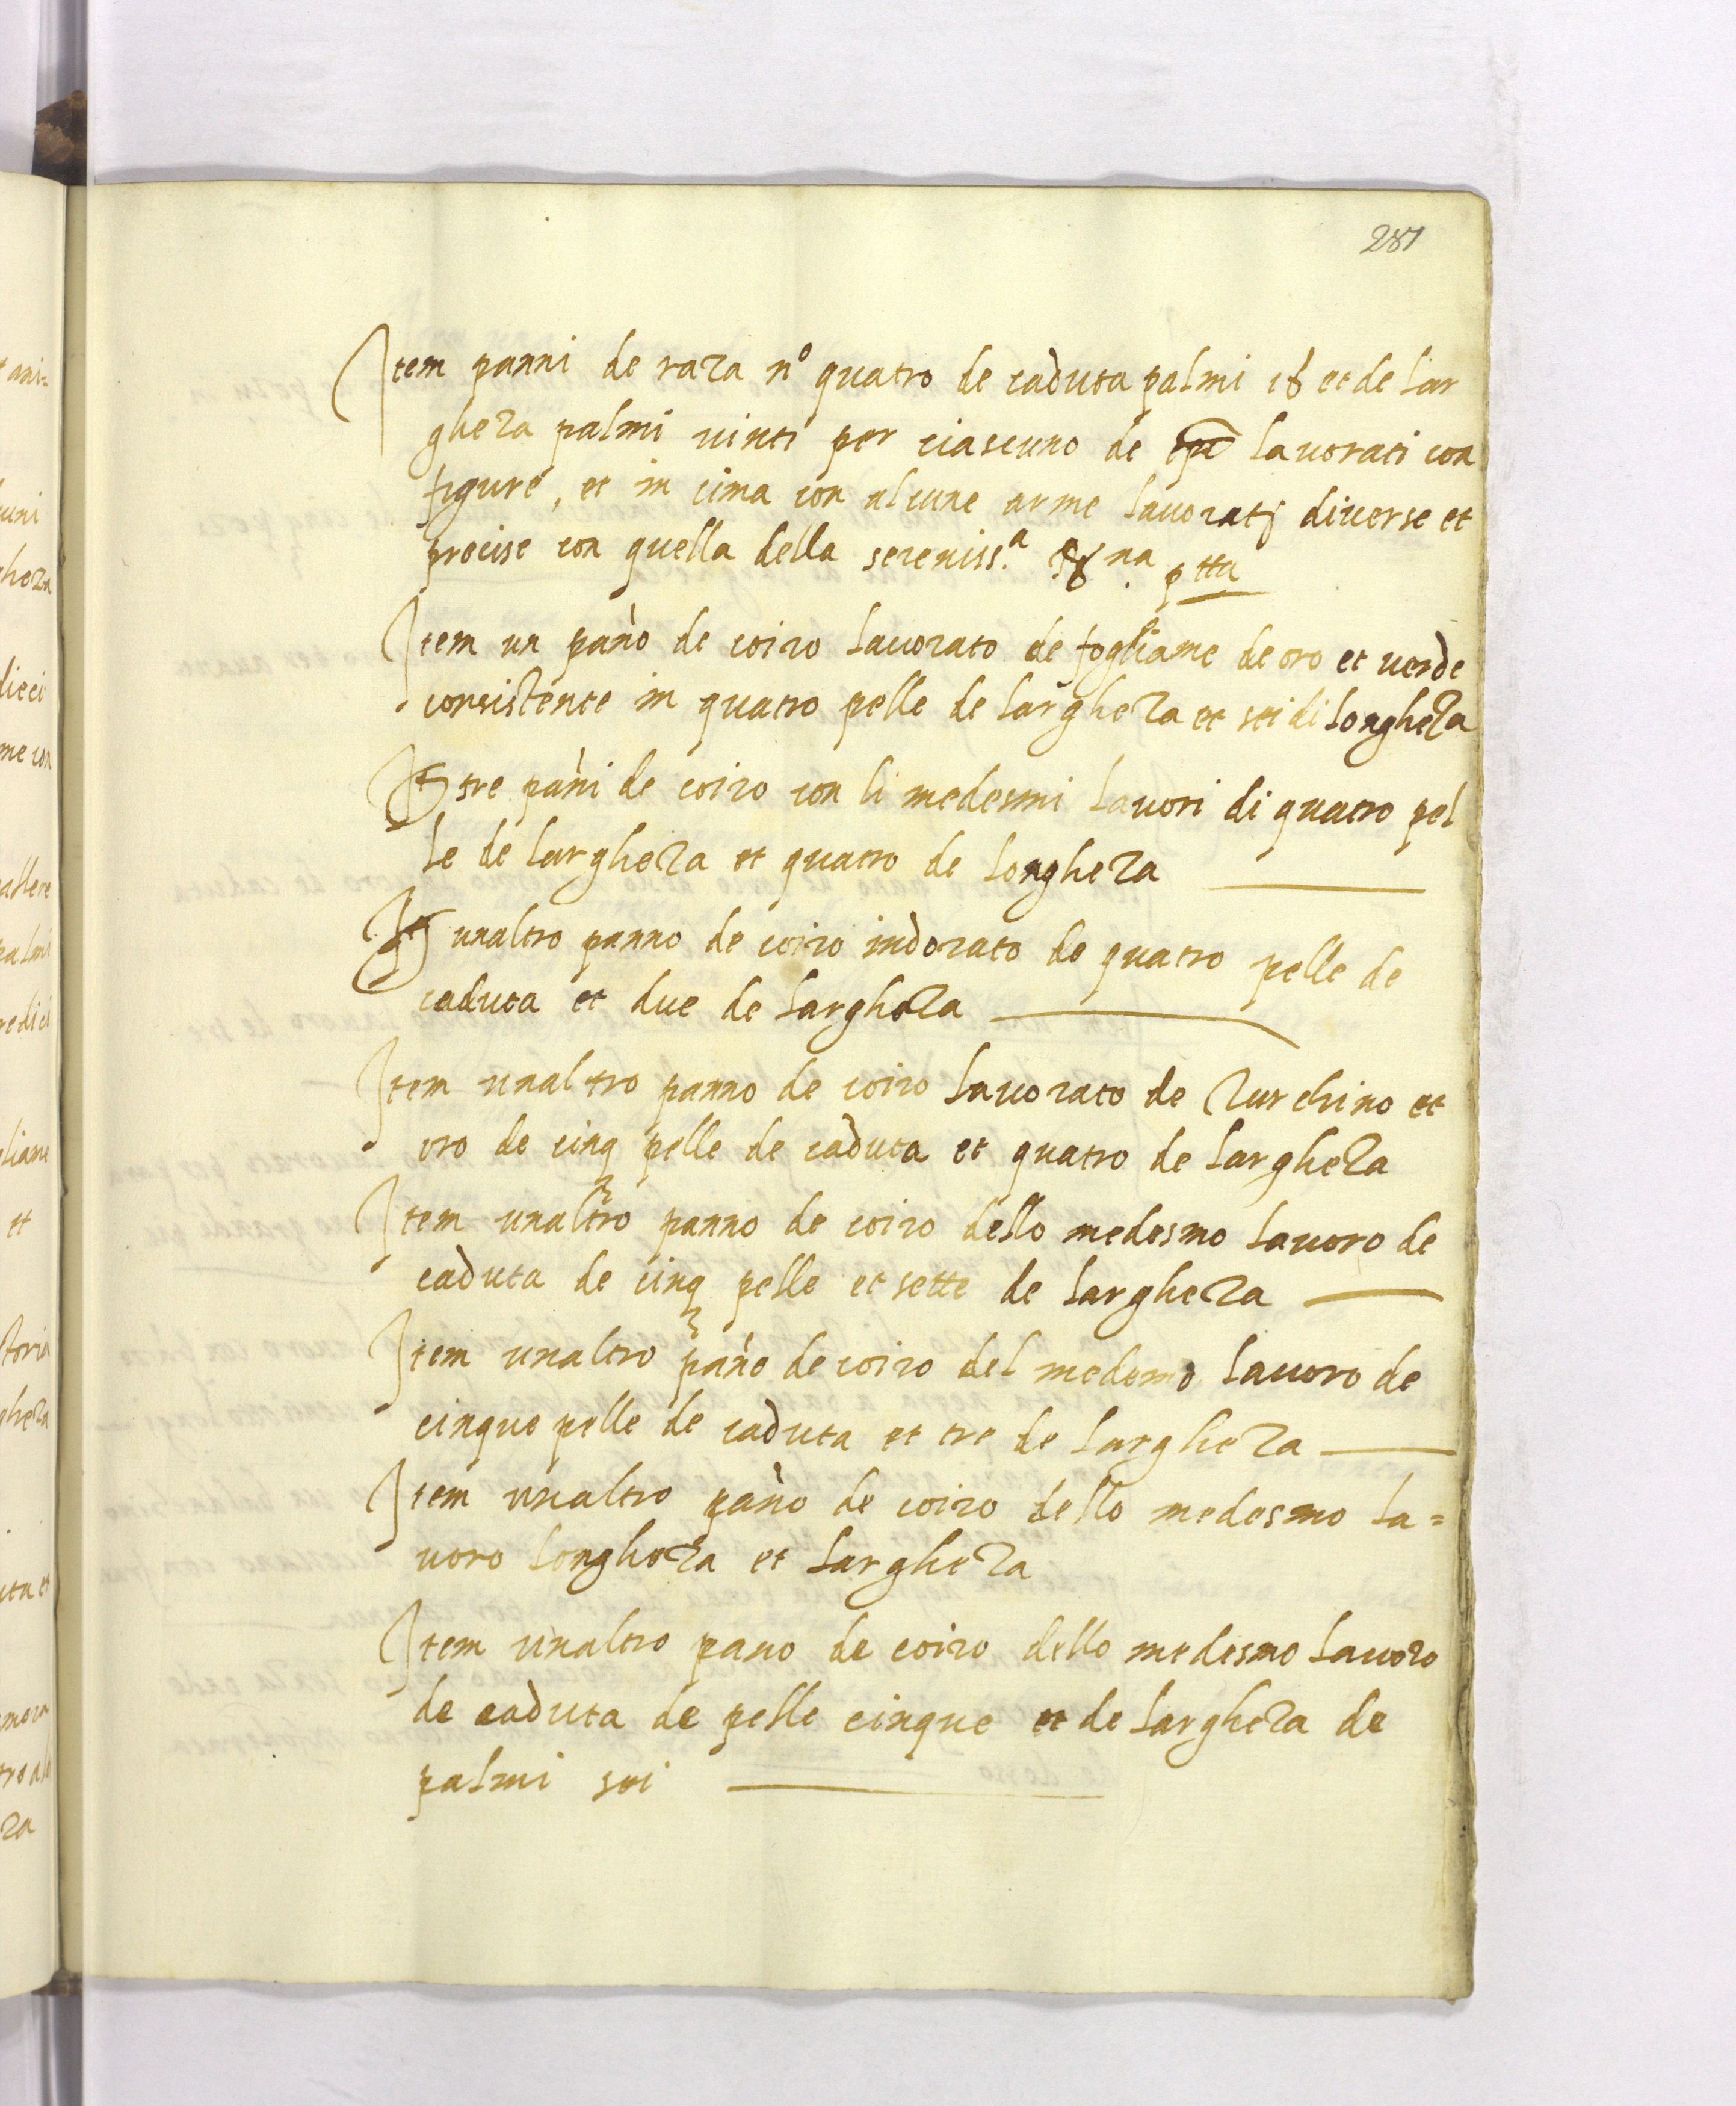 281
Item panni de raza n° quatro de caduta palmi 18 et de lar
gheza palmi vinti per ciascuno de lavorati con
figure, et in cima con alcune arme lavoratj diverse et
precise con quella della sereniss.a R.na p.tta
Item un pano de coiro lavorato de fogliame de oro et verde
consistente in quatro pelle de largheza et sei di longheza
It tre pani de coiro con li medesmi lavori di quatro pel
le de largheza et quatro de longheza
It unaltro panno de coiro indorato de quatro pelle de
caduta et due de largheza
Item unaltro panno de coiro lavorato de turchino et
oro de cinq pelle de caduta et quatro de largheza
Item unaltro panno de coiro dello medesmo lavoro de
caduta de cinq pelle et sette de largheza
Item unaltro pano de coiro del medemo lavoro de
cinque pelle de caduta et tre de largheza
Item unaltro pano de coiro dello medesmo la=
voro longheza et largheza
Item unaltro pano de coiro dello medesmo lavoro
de caduta de pelle cinque et de largheza de
palmi sei